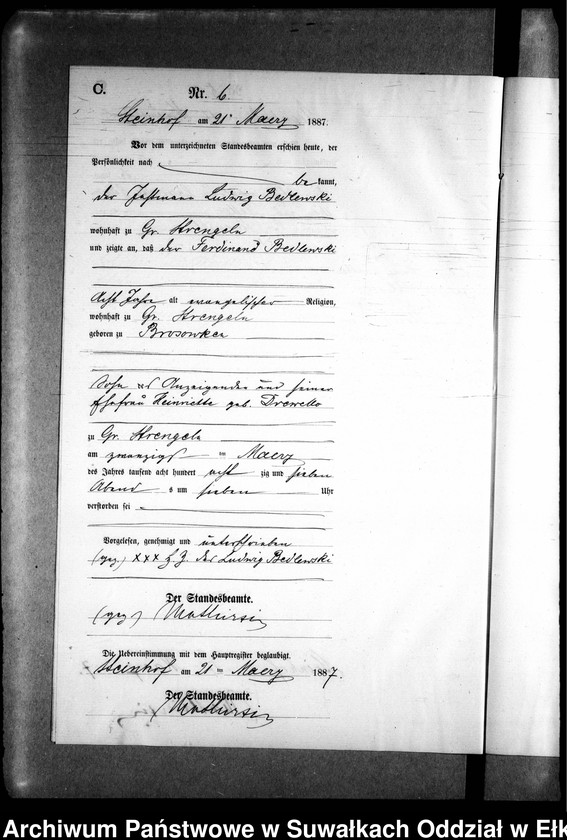 C.
Nr. 6.
Steinhof am 21. Maerz 1887.
Vor dem unterzeichneten Standesbeamten erschien heute, der
Persönlichkeit nach
bekannt,
der Instmann Ludwig Bedlewski
wohnhaft zu Gr. Strengeln
und zeigte an, daß der Ferdinand Bedlewski
Acht Jahre alt evangelischer Religion,
wohnhaft zu Gr. Strengeln
geboren zu Brosowken
Sohn des Anzeigenden und seiner
Ehefrau Heinriette geb. Drewello
zu Gr. Strengeln
am zwanzigst ten Maerz
des Jahres tausend acht hundert acht zig und sieben
Abend s um sieben Uhr
verstorben sei
Vorgelesen, genehmigt und unterschrieben
(gez) XXX H. Z. des Ludwig Bedlewski
Der Standesbeamte.
(gez)
Die Uebereinstimmung mit dem Hauptregister beglaubigt.
Steinhof am 21 ten Maerz 1887.
Der Standesbeamte.
Archiwum Państwowe w Suwałkach Oddział w Ełk